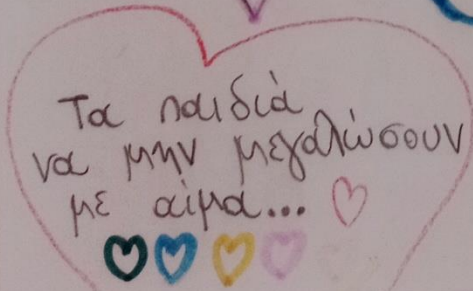 Τα παιδιά
να μην μεγαλώσουν
με αίμα...